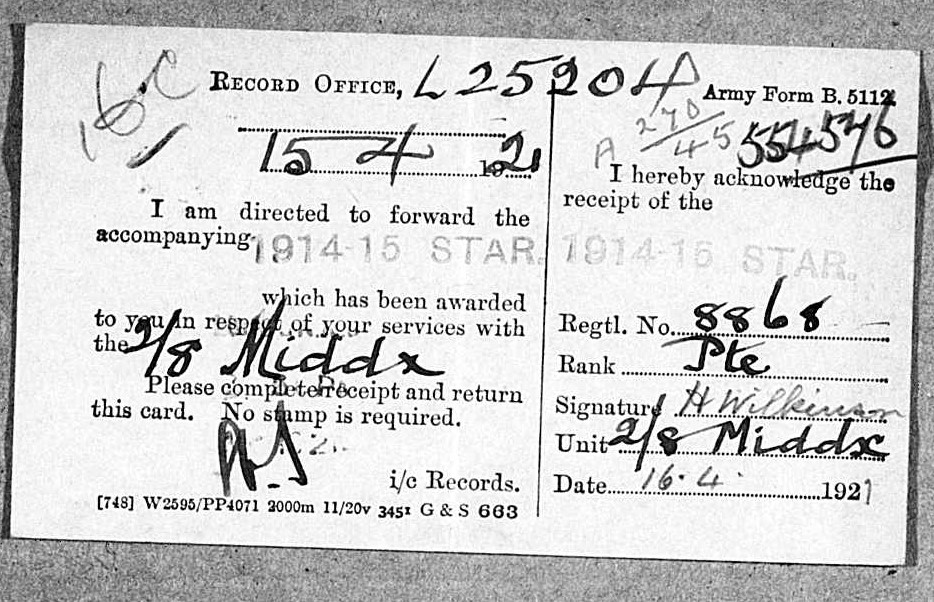 RECORD OFFICE, L 25204
15 4 1921
I am directed to forward the
accompanying
1914-15 STAR.
which has been awarded
to you in respect of your services with
the 2/8 Middx
Please complete Receipt and return
this card. No stamp is required.
i/c Records.
[748] W2595/PP4071 2000m 11/20v 3451 G & S 663
Army Form B. 5112
A 270/45
554576
I hereby acknowledge the
receipt of the
1914-15 STAR.
Regtl. No. 8868
Rank Pte
Signature H Wilkinson
Unit 2/8 Middx
Date 16.4. 1921